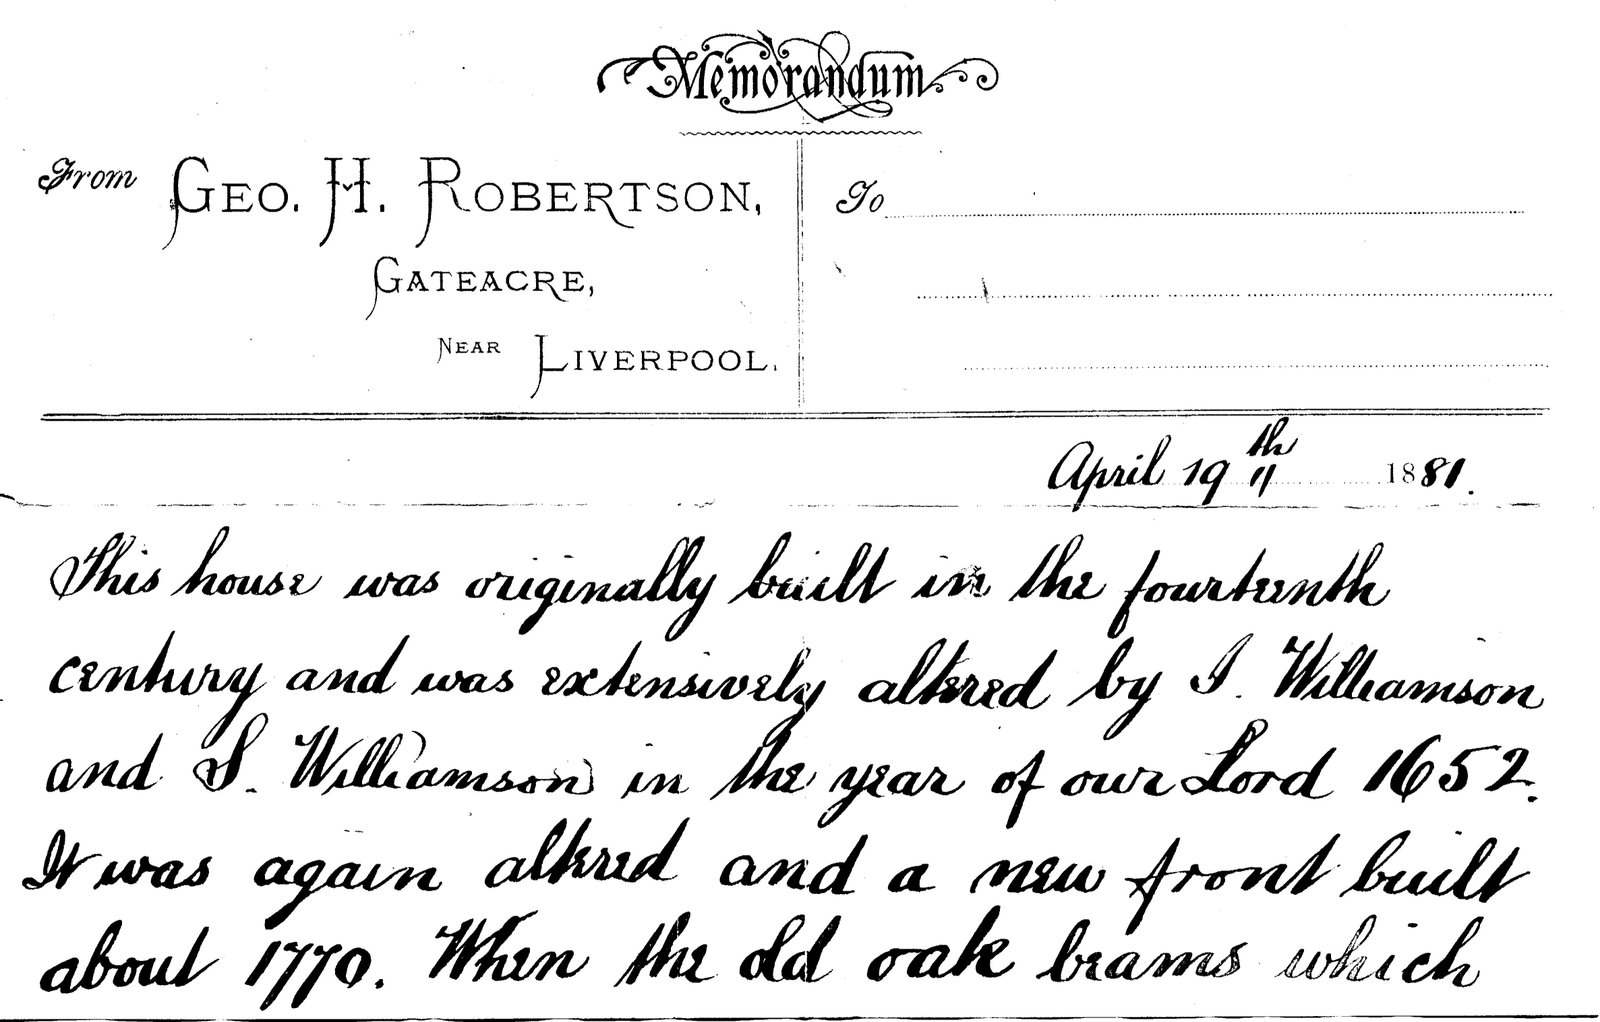 Memorandum
From GEO. H. ROBERTSON,
To
GATEACRE,
NEAR LIVERPOOL.
April 19th 1881.
This house was originally built in the fourteenth
century and was extensively altered by I. Williamson
and S. Williamson in the year of our Lord 1652.
It was again altered and a new front built
about 1770. When the old oak beams which